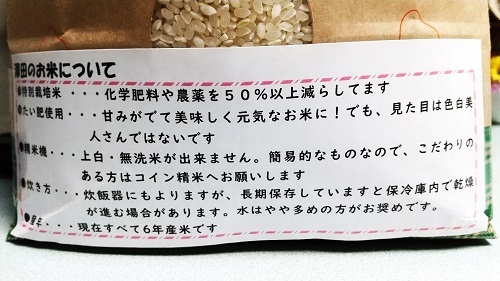 澤田のお米について
●特別栽培米・・・化学肥料や農薬を５０％以上減らしてます
●たい肥使用・・・甘みがでて美味しく元気なお米に！でも、見た目は色白美
人さんではないです
●精米機・・・上白・無洗米が出来ません。簡易的なものなので、こだわりの
ある方はコイン精米へお願いします
●炊き方・・・炊飯器にもよりますが、長期保存していますと保冷庫内で乾燥
が進む場合があります。水はやや多めの方がお奨めです。
・・・現在すべて6年産米です